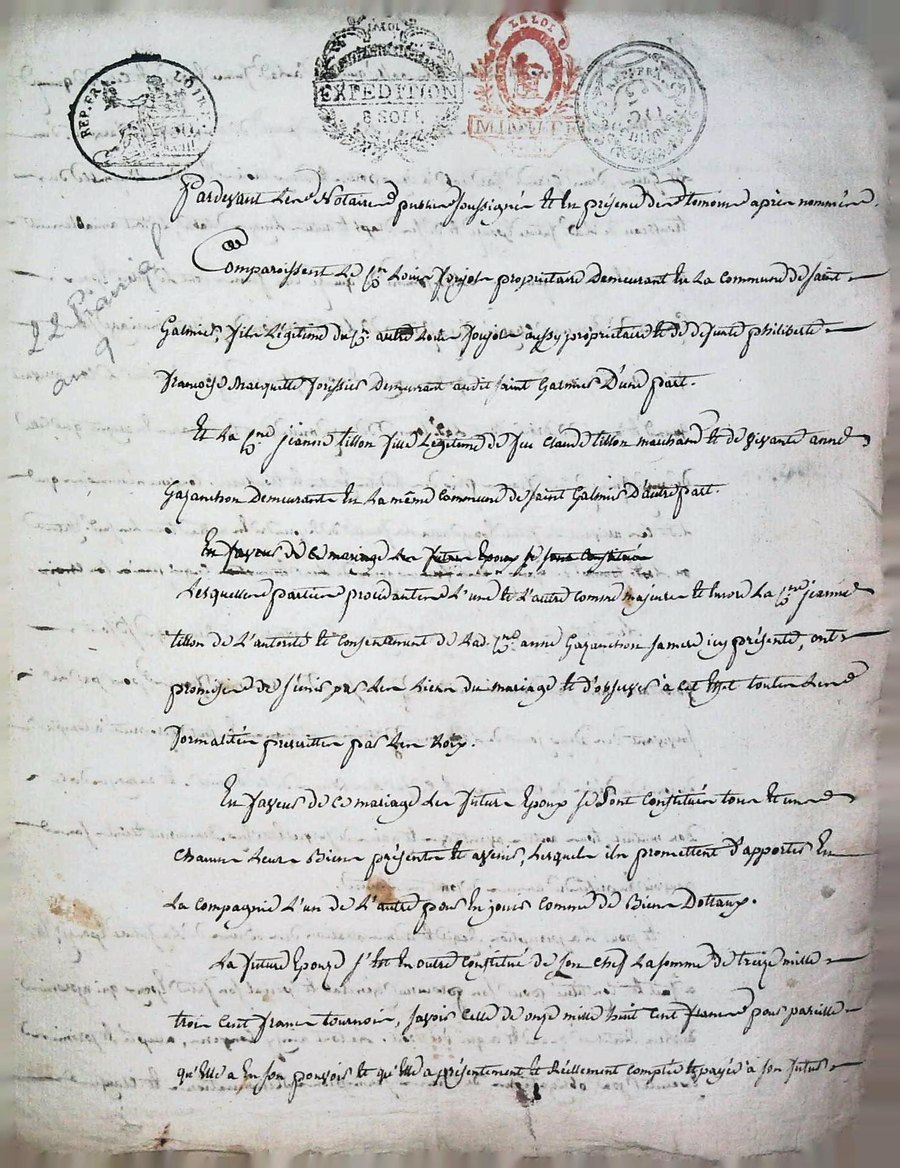 REP. FRA. LOI
LA LOI
EXPEDITION
8 SOLS
LA LOI
MINUTE
REP. FRA.
Pardevant Les Notaires publics soussignés et En présence des temoins après nommés.
22 Prairial
an 9
Comparoissent Le Cn Louis propriétaire Demeurant En La Commune de saint
Galmier, fils Légitime du Cn autre Louis aussy propriétaire et de defunte philiberte
françoise Demeurant audit saint Galmier D'une part.
Et La Cne jeanne tillon fille Légitime de feu Claude tillon marchand et de vivante anne
Gazanchon Demeurante En La même Commune de saint Galmier D'autre part.
En faveur de Ce mariage Les futurs Epoux se sont Constitués
Lesquelles parties procédantes L'une et L'autre Comme majeures et Encore La Cne jeanne
tillon de L'autorité et Consentement de Lad. Cne anne Gazanchon sa mere icy présente, ont
promis de s'unir par Les Liens du mariage et d'observer à Cet Effet toutes Les
formalités prescrittes par Les Loix.
En faveur de Ce mariage Les futurs Epoux se sont Constitués tous et uns
Chacuns Leurs Biens présents et avenir, Lesquels ils promettent d'apporter En
La Compagnie L'un de L'autre pour En jouir Comme de Biens Dottaux.
La future Epouze s'est En outre Constitué de son Chef La somme de treize mille
trois Cent francs tournois, savoir Celle de onze mille huit Cent francs pour pareille
qu'Elle a En son pouvoir et qu'Elle a présentement et Réellement Compté et payés à son futur